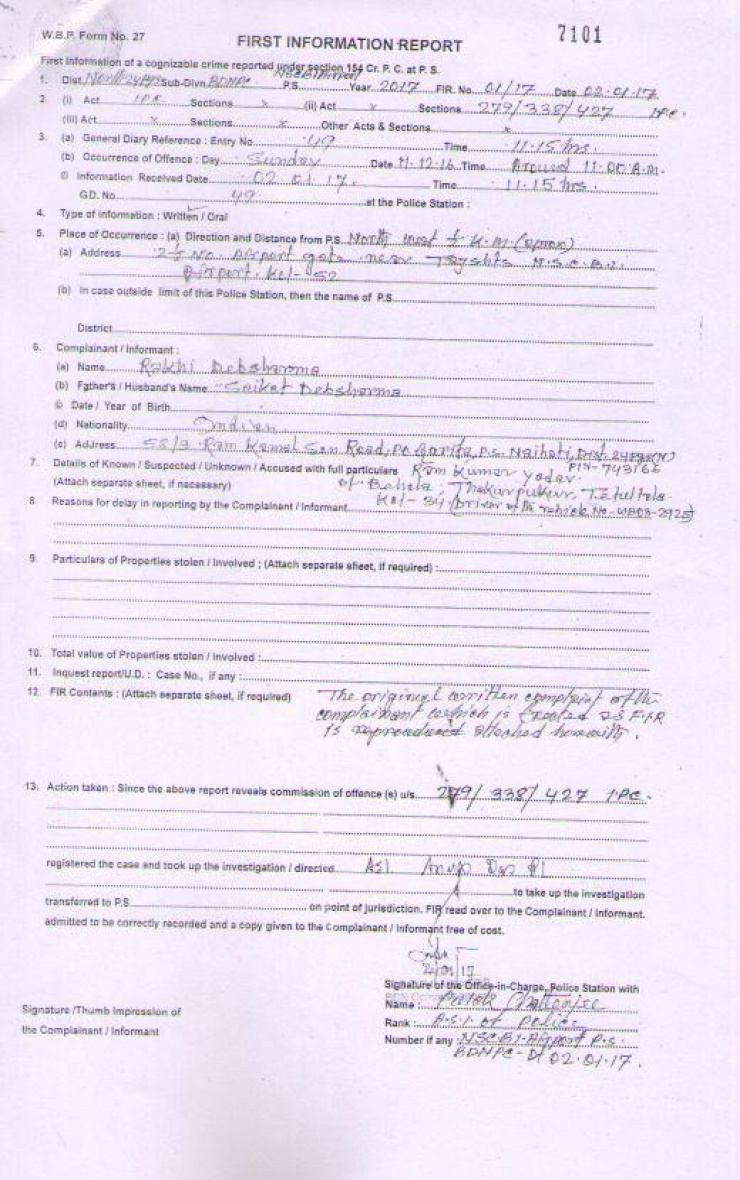 7101
W.B.P. Form No. 27
FIRST INFORMATION REPORT
First Information of a cognizable crime reported under section 154 Cr. P. C. at P. S.
1. Dist. North 24 Sub-Divn. BDNPC P.S. NSCBI Airport Year 2017 FIR. No. 01/17 Date 02.01.17.
2. (i) Act IPC Sections x (ii) Act Sections 279/338/427 IPC.
(iii) Act x Sections x Other Acts & Sections x
3. (a) General Diary Reference : Entry No. 49 Time 11.15 hrs.
(b) Occurrence of Offence : Day Sunday Date 11.12.16 Time Around 11.00 A.M.
© Information Received Date 02.01.17. Time 11.15 hrs.
G.D. No. 49 at the Police Station :
4. Type of Information : Written / Oral
5. Place of Occurrence : (a) Direction and Distance from P.S. North West ½ K.M
(a) Address 2½ No. Airport gate near N.S.C.B.I
Airport. Kol-52
(b) In case outside limit of this Police Station, then the name of P.S.
District
6. Complainant / Informant :
(a) Name Rakhi Debsharma
(b) Father's / Husband's Name Saikat Debsharma
© Date / Year of Birth
(d) Nationality Indian
(e) Address 58/3 Ram Kamal Sen Road, Po Garifa, P.S. Naihati, Dist. 24
PIN-743166
7. Details of Known / Suspected / Unknown / Accused with full particulars Ram Kumar Yadav
(Attach separate sheet, if necessary) of Behala, Thakurpukur, Tetultala.
8. Reasons for delay in reporting by the Complainant / Informant Kol-34 (Driver of the vehicle No-WB03-2925)
9. Particulars of Properties stolen / Involved ; (Attach separate sheet, if required) :
10. Total value of Properties stolen / Involved :
11. Inquest report/U.D. : Case No., if any :
12. FIR Contents : (Attach separate sheet, if required) The original written complaint of the
complainant which is treated as FIR
is attached herewith.
13. Action taken : Since the above report reveals commission of offence (s) u/s. 279/338/427 IPC.
registered the case and took up the investigation / directed ASI Das
to take up the investigation
transferred to P.S. on point of jurisdiction. FIR read over to the Complainant / Informant.
admitted to be correctly recorded and a copy given to the Complainant / Informant free of cost.
Signature of the Office-in-Charge, Police Station with
Name : Chatterjee
Signature /Thumb Impression of
Rank : A.S.I. of Police
the Complainant / Informant
Number if any : NSCBI Airport P.S.
BDNPC Dt 02.01.17.